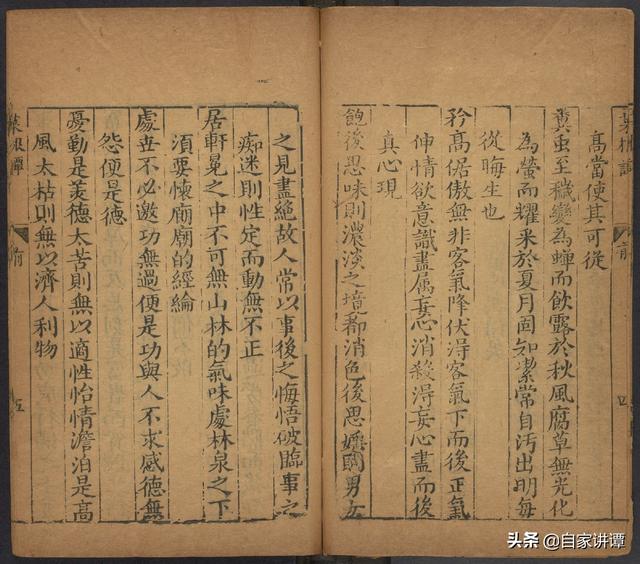 菜根譚
前
四
高當使其可從
糞虫至穢變為蟬而飲露於秋風腐草無光化
為螢而耀采於夏月固知潔常自汚出明每
從晦生也
矜高倨傲無非客氣降伏得客氣下而後正氣
伸情欲意識盡属妄心消殺得妄心盡而後
真心現
飽後思味則濃淡之境都消色後思男女
之見盡絶故人常以事後之悔悟破臨事之
痴迷則性定而動無不正
居軒冕之中不可無山林的氣味處林泉之下
須要懷廟廟的經綸
處丗不必邀功無過便是功與人不求感德無
怨便是德
憂勤是美德太苦則無以適性怡情澹泊是高
風太枯則無以濟人利物
菜根譚
前
五
头条 @自家讲谭